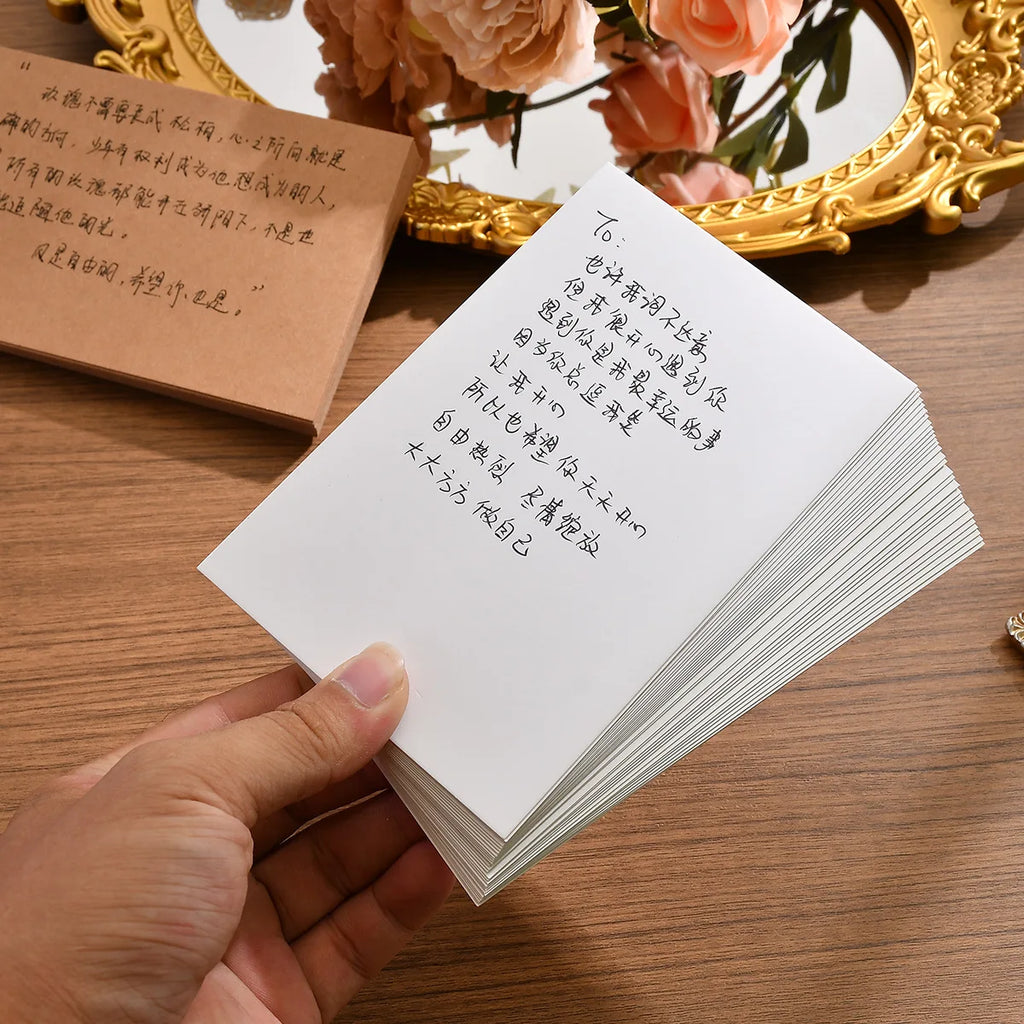 “
玫瑰不需要长成松柏,心之所向就是
确的方向,少年有权利成为他想成为的人,
所有的玫瑰都能开在骄阳下,不是也
追随他的光。
风是自由的,希望你也是。”
To:
也许我词不达意
但我很开心遇到你
遇到你是我最幸运的事
因为你总逗我笑
让我开心
所以也希望你天天开心
自由热烈 尽情绽放
大大方方做自己